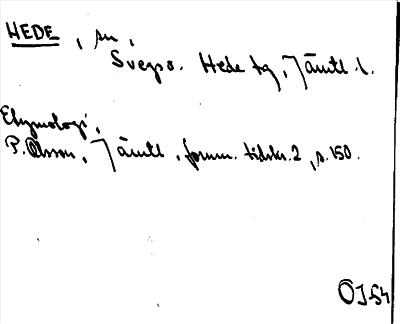 HEDE, sn,
Svegs. Hede tg, Jämtl. l.
Etymologi,
P. Olsson, Jämtl. fornm. tidskr. 2, s. 150.
ÖJ 54